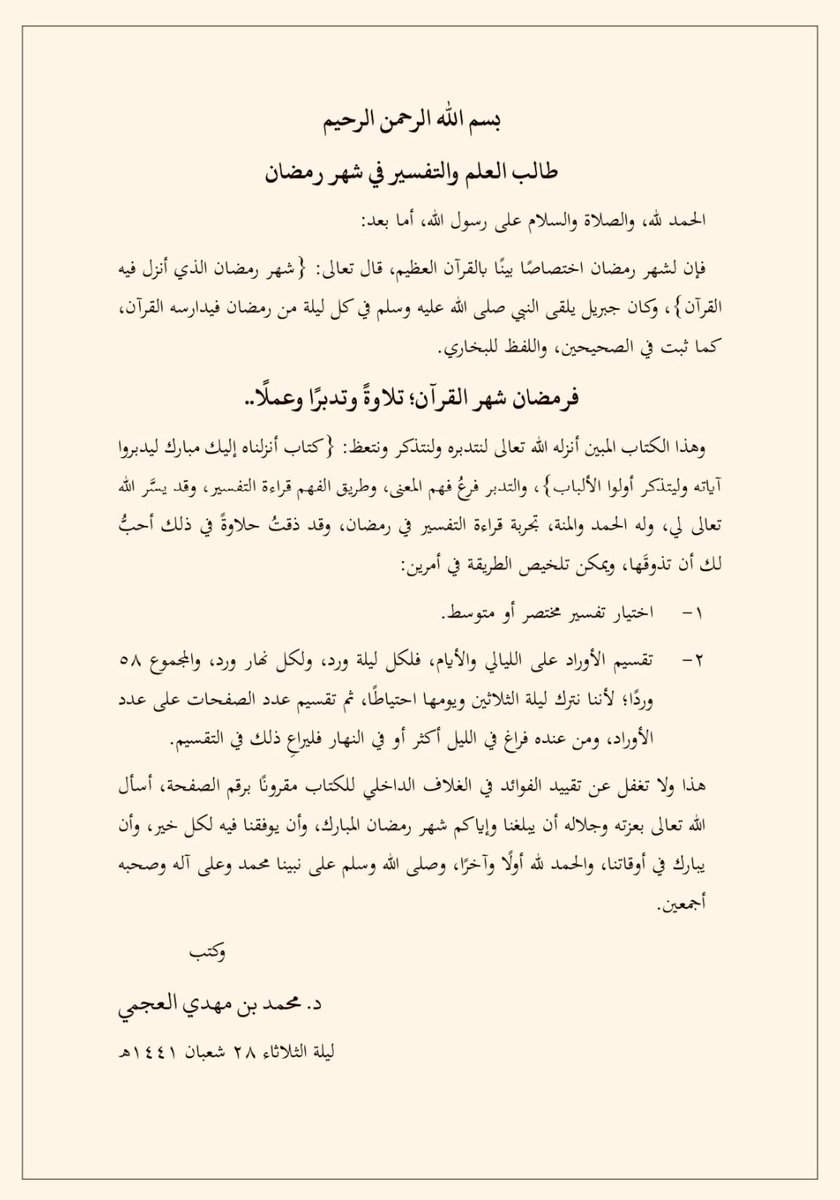 بسم الله الرحمن الرحيم
طالب العلم والتفسير في شهر رمضان
الحمد لله، والصلاة والسلام على رسول الله، أما بعد:
فإن لشهر رمضان اختصاصًا بينًا بالقرآن العظيم، قال تعالى: {شهر رمضان الذي أنزل فيه
القرآن}، وكان جبريل يلقى النبي صلى الله عليه وسلم في كل ليلة من رمضان فيدارسه القرآن،
كما ثبت في الصحيحين، واللفظ للبخاري.
فرمضان شهر القرآن؛ تلاوةً وتدبرًا وعملًا..
وهذا الكتاب المبين أنزله الله تعالى لنتدبره ولنتذكر ونتعظ: {كتاب أنزلناه إليك مبارك ليدبروا
آياته وليتذكر أولوا الألباب}، والتدبر فرعُ فهم المعنى، وطريق الفهم قراءة التفسير، وقد يسَّر الله
تعالى لي، وله الحمد والمنة، تجربة قراءة التفسير في رمضان، وقد ذقتُ حلاوةً في ذلك أحبُّ
لك أن تذوقَها، ويمكن تلخيص الطريقة في أمرين:
١- اختيار تفسير مختصر أو متوسط.
٢- تقسيم الأوراد على الليالي والأيام، فلكل ليلة ورد، ولكل نهار ورد، والمجموع ٥٨
وردًا؛ لأننا نترك ليلة الثلاثين ويومها احتياطًا، ثم تقسيم عدد الصفحات على عدد
الأوراد، ومن عنده فراغ في الليل أكثر أو في النهار فليراعِ ذلك في التقسيم.
هذا ولا تغفل عن تقييد الفوائد في الغلاف الداخلي للكتاب مقرونًا برقم الصفحة، أسأل
الله تعالى بعزته وجلاله أن يبلغنا وإياكم شهر رمضان المبارك، وأن يوفقنا فيه لكل خير، وأن
يبارك في أوقاتنا، والحمد لله أولًا وآخرًا، وصلى الله وسلم على نبينا محمد وعلى آله وصحبه
أجمعين.
وكتب
د. محمد بن مهدي العجمي
ليلة الثلاثاء ٢٨ شعبان ١٤٤١هـ